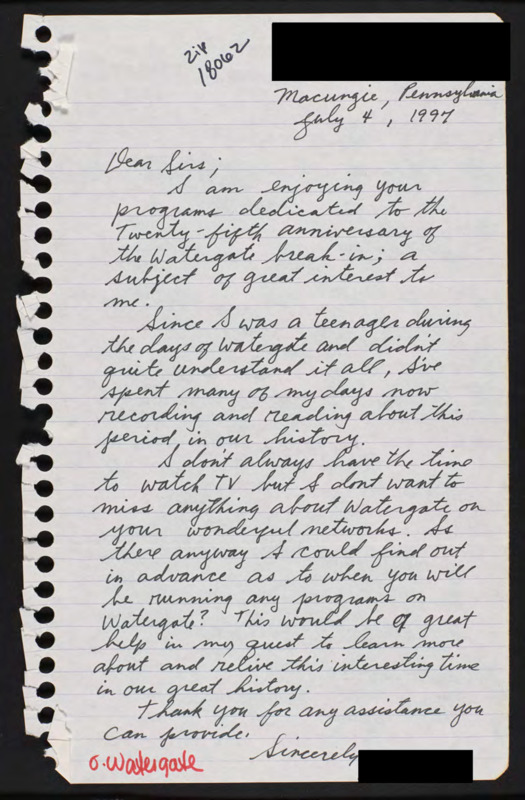 zip
18062
Macungie, Pennsylvania
July 4, 1997
Dear Sirs;
I am enjoying your
programs dedicated to the
Twenty-fifth anniversary of
the Watergate break-in; a
subject of great interest to
me.
Since I was a teenager during
the days of Watergate and didn't
quite understand it all, I've
spent many of my days now
recording and reading about this
period in our history.
I don't always have the time
to watch TV but I dont want to
miss anything about Watergate on
your wonderful networks. Is
there anyway I could find out
in advance as to when you will
be running any programs on
Watergate? This would be of great
help in my quest to learn more
about and relive this interesting time
in our great history.
Thank you for any assistance you
can provide.
Sincerely
O. Watergate